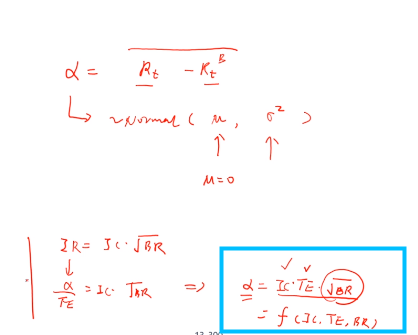 α = R_t - R_t^B
↳ ~Normal ( μ, σ² )
↑ ↑
μ=0
IR = IC · √BR
↓
α/TE = IC · √BR ⇒
✓ ✓
α = IC · TE · √BR
= f (IC, TE, BR)